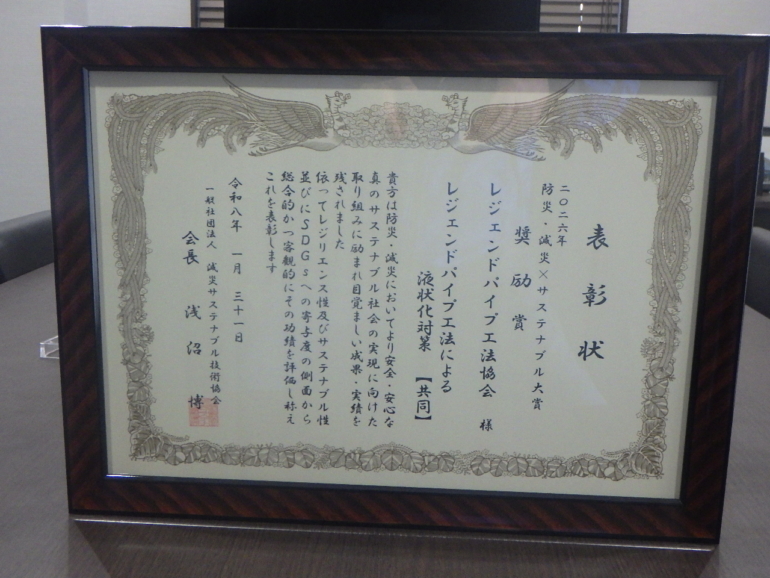 表彰状
二〇二六年
防災・減災×サステナブル大賞
奨励賞
レジェンドパイプ工法協会 様
レジェンドパイプ工法による
液状化対策 【共同】
貴方は防災・減災においてより安全・安心な
真のサステナブル社会の実現に向けた
取り組みに励まれ目覚ましい成果・実績を
残されました
依ってレジリエンス性及びサステナブル性
並びにSDGsへの寄与度の側面から
総合的かつ客観的にその功績を評価し称え
これを表彰します
令和八年 一月 三十一日
一般社団法人 減災サステナブル技術協会
会長 浅沼 博